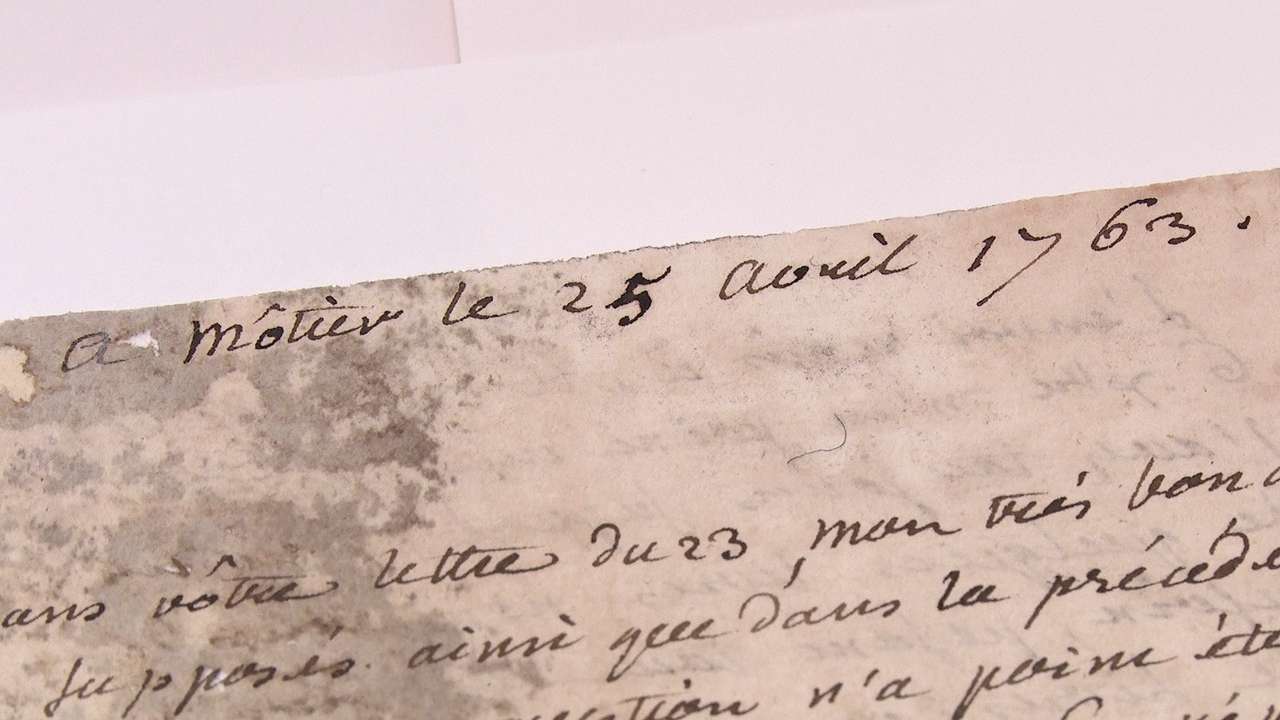 a Môtier le 25 avril 1763.
ans vôtre lettre du 23, mon très bon
supposés ainsi que dans la précéde
n'a point été